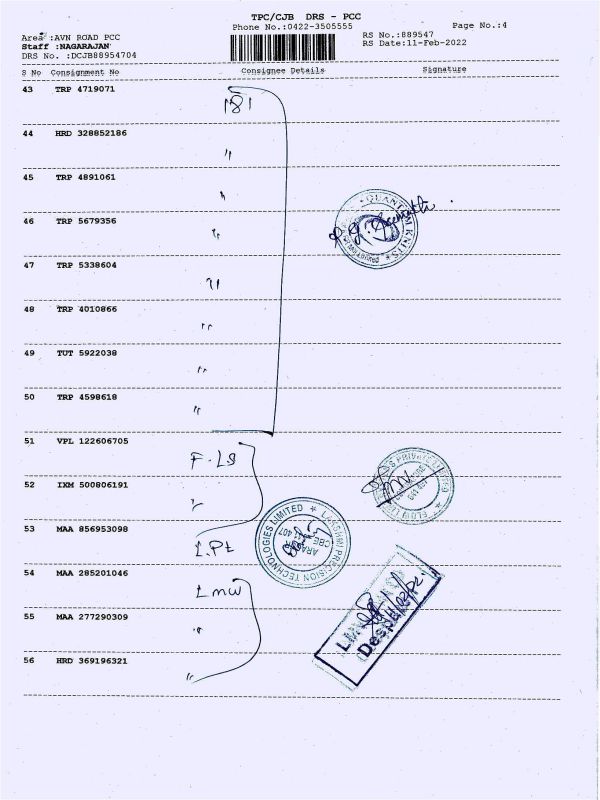 TPC/CJB DRS - PCC
Phone No.:0422-3505555
Page No.:4
Area :AVN ROAD PCC
RS No.:889547
Staff :NAGARAJAN
RS Date:11-Feb-2022
DRS No. :DCJB88954704
S No Consignment No Consignee Details Signature
43 TRP 4719071
181
44 HRD 328852186
"
45 TRP 4891061
"
46 TRP 5679356
"
47 TRP 5338604
"
48 TRP 4010866
"
49 TUT 5922038
"
50 TRP 4598618
"
51 VPL 122606705
F.LS
52 IXM 500806191
"
53 MAA 856953098
L.Pt
LAKSHMI PRECISION TECHNOLOGIES LIMITED
54 MAA 285201046
Lmw
55 MAA 277290309
"
56 HRD 369196321
"